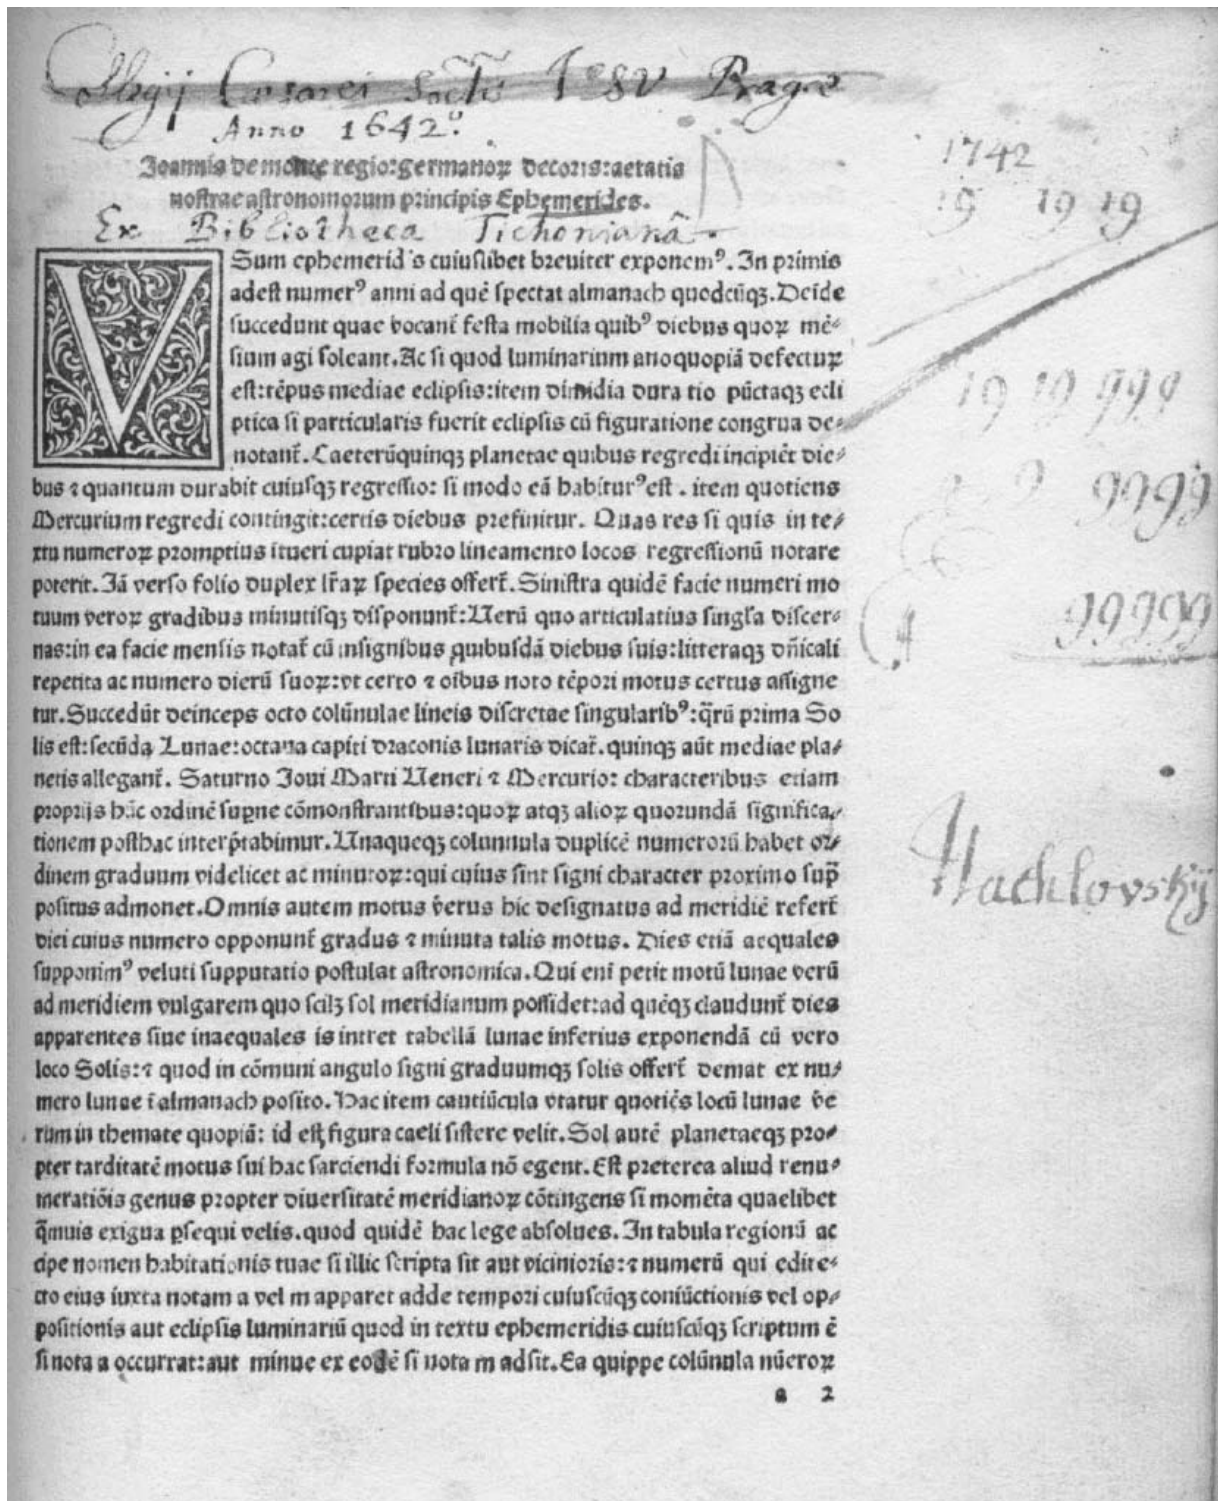 Collegij Caesarei Soctis IESV Pragae
Anno 1642º.
Ioannis de monte regio:germanoꝝ decoris:aetatis
nostrae astronomorum principis Ephemerides.
Ex Bibliotheca Tichonianâ.
VSum ephemeridis cuiuslibet breuiter exponemꝰ. In primis
adest numerꝰ anni ad quē spectat almanach quodcūqꝫ. Deīde
succedunt quae vocant̃ festa mobilia quibꝰ diebus quoꝝ mē-
sium agi soleant. Ac si quod luminarium anoquopiā defectuꝝ
est:tēpus mediae eclipsis:item dimidia dura tio pūctaqꝫ ecli
ptica si particularis fuerit eclipsis cū figuratione congrua de-
notant̃. Caeterūquinqꝫ planetae quibus regredi incipiēt die-
bus ⁊ quantum durabit cuiusqꝫ regressio: si modo eā habiturꝰ est . item quotiens
Mercurium regredi contingit:certis diebus prefinitur. Quas res si quis in te-
xtu numeroꝝ promptius ītueri cupiat rubro lineamento locos regressionū notare
poterit. Iā verso folio duplex lr̃aꝝ species offert̃. Sinistra quidē facie numeri mo
tuum veroꝝ gradibus minutisqꝫ disponunt̃: Verū quo articulatius singl'a discer-
nas:in ea facie mensis notat̃ cū insignibus quibusdā diebus suis:litteraqꝫ dñicali
repetita ac numero dierū suoꝝ:vt certo ⁊ oībus noto tēpori motus certus assigne
tur. Succedūt deinceps octo colūnulae lineis discretae singularibꝰ:q̄rū prima So
lis est:secūda Lunae:octaua capiti draconis lunaris dicat̃. quinqꝫ aūt mediae pla-
netis allegant̃. Saturno Ioui Marti Veneri ⁊ Mercurio: characteribus etiam
proprijs hūc ordinē sup̱ne cōmonstrantibus:quoꝝ atqꝫ alioꝝ quorundā significa-
tionem posthac interp̄tabimur. Vnaqueqꝫ colunnula duplicē numerorū habet or-
dinem graduum videlicet ac minutoꝝ:qui cuius sint signi character proximo sup̄
positus admonet. Omnis autem motus v̄erus hic designatus ad meridiē refert̃
diei cuius numero opponunt̃ gradus ⁊ minuta talis motus. Dies etiā aequales
supponimꝰ veluti supputatio postulat astronomica. Qui enī petit motū lunae verū
ad meridiem vulgarem quo scilꝫ sol meridianum possidet:ad quēqꝫ claudunt̃ dies
apparentes siue inaequales is intret tabellā lunae inferius exponendā cū vero
loco Solis:⁊ quod in cōmuni angulo signi graduumqꝫ solis offert̃ demat ex nu-
mero lunae ī almanach posito. Hac item cautiūcula vtatur quotiēs locū lunae v̄e
rum in themate quopiā: id est figura caeli sistere velit. Sol autē planetaeqꝫ pro-
pter tarditatē motus sui hac sarciendi formula nō egent. Est preterea aliud renu-
meratiōis genus propter diuersitatē meridianoꝝ cōtingens si momēta quaelibet
q̄muis exigua ꝑsequi velis. quod quidē hac lege absolues. In tabula regionū ac
cipe nomen habitationis tuae si illic scripta sit aut vicinioris:⁊ numerū qui edire-
cto eius iuxta notam a vel m apparet adde tempori cuiuscūqꝫ coniūctionis vel op-
positionis aut eclipsis luminariū quod in textu ephemeridis cuiuscūqꝫ scriptum ē
si nota a occurrat:aut minue ex eodē si nota m adsit. Ea quippe colūnula nūeroꝝ
a 2
1742
19 19 19
19 19 999
9999
99999
Hachlovskÿ